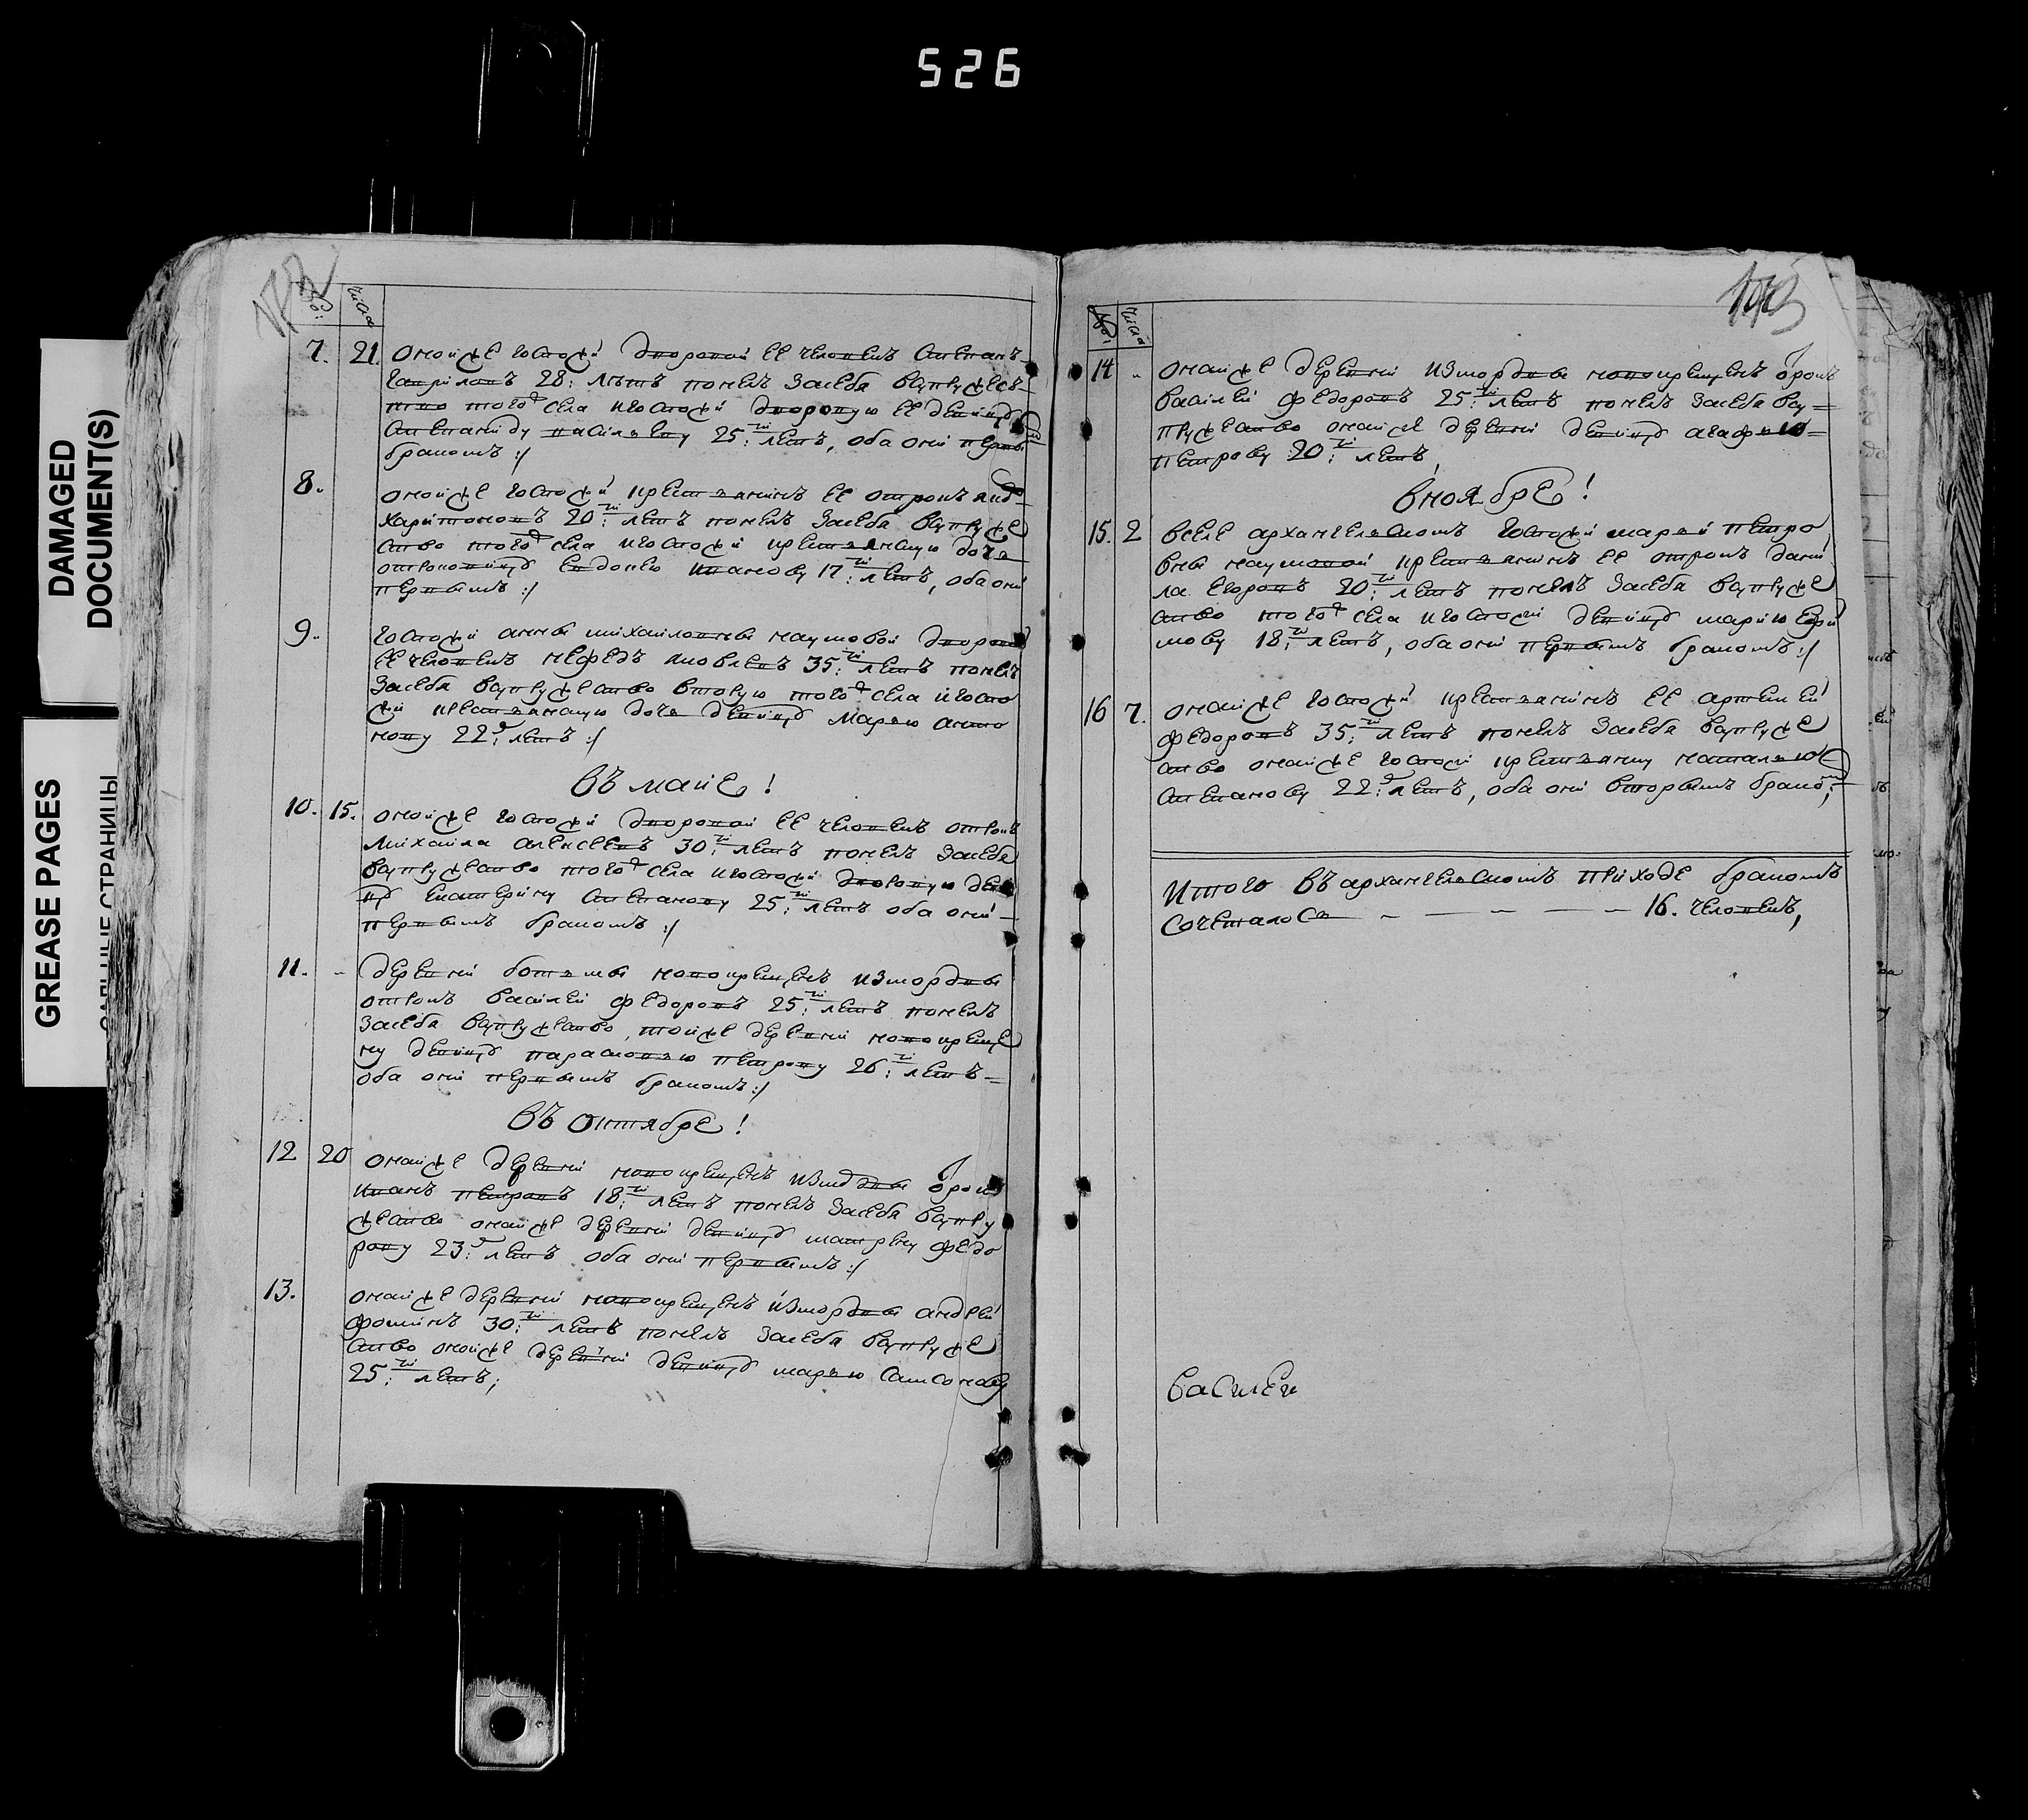 526
DAMAGED
DOCUMENT(S)
GREASE PAGES
САЛЬНЫЕ СТРАНИЦЫ
172
№: числа
7. 21. Онойже госпожи дворовой ее человекъ Степанъ
Гаврiловъ 28: лѣтъ понелъ засебя всупружес
тво тогожъ села iгоспожи дворовую ее девицу
Степаниду василъеву 25:ти летъ, оба они первы
бракомъ :/
8. онойже госпожи крестьянiнъ ее отрокъ
харiтоновъ 20:ти летъ понелъ засебя всупруже
ство тогожъ села iгоспожи крестьянскую дочь
отроковицу Евдокею иванову 17:ти летъ, оба онi
первымъ :/
9. госпожи анны мiхаiловны наумовой дворово
ее человекъ нефедъ яковлевъ 35:ти летъ понелъ
засебя всупружество вторую тогожъ села iгоспо
жи крестьянскую дочь девицу марью анто
нову 22:у летъ :/
въ маiе !
10. 15. онойже госпожи дворовой ее человекъ отрокъ
мiхаiла алексеевъ 30:ти летъ понелъ засебя
всупружество тогожъ села iгоспожи дворовую деви
цу екатерiну степанову 25:ти летъ оба онi
первымъ бракомъ :/
11. деревнi новокрещенъ измордвы
отрокъ васiлей федоровъ 25:ти летъ понелъ
засебя всупружество, тойже деревнi новокреще
ну девицу парасковью петрову 26:ти летъ
оба онi первымъ бракомъ :/
въ октябре !
12 20 онойже деревнi новокрещенъ измордвы
иванъ петровъ 18:ти летъ понелъ засебя всупру
жество онойже деревнi девицу матрену федо
рову 23:у летъ оба онi первымъ :/
13. онойже деревнi новокрещенъ iзмордвы андреi
фомiнъ 30:ти летъ понелъ засебя всупруже
ство онойже деревнi девицу марью самсонову
25:ти летъ;
173
№: числа
14 онойже деревнi измордвы новокрещенъ
васiлей федоровъ 25:ти летъ понелъ засебя всу
пружество онойже деревнi девицу агафью
петрову 20:ти летъ,
вноябре !
15. 2 вселе архангелъскомъ госпожи марьи петро
вны наумовой крестьянiнъ ее отрокъ данi
ла егоровъ 20:ти летъ понелъ засебя всупруже
ство тогожъ села iгоспожи девицу марiю ефи
мову 18:ти летъ, оба онi первымъ бракомъ :/
16 7. онойже госпожи крестьянiнъ ее артемей
федоровъ 35:ти летъ понелъ засебя всупруже
ство онойже госпожи крестьянку наталъю
степанову 22:у летъ, оба онi вторымъ бракомъ;
итого въ архангелъскомъ прiходе бракомъ
сочеталось 16. человекъ,
василеи